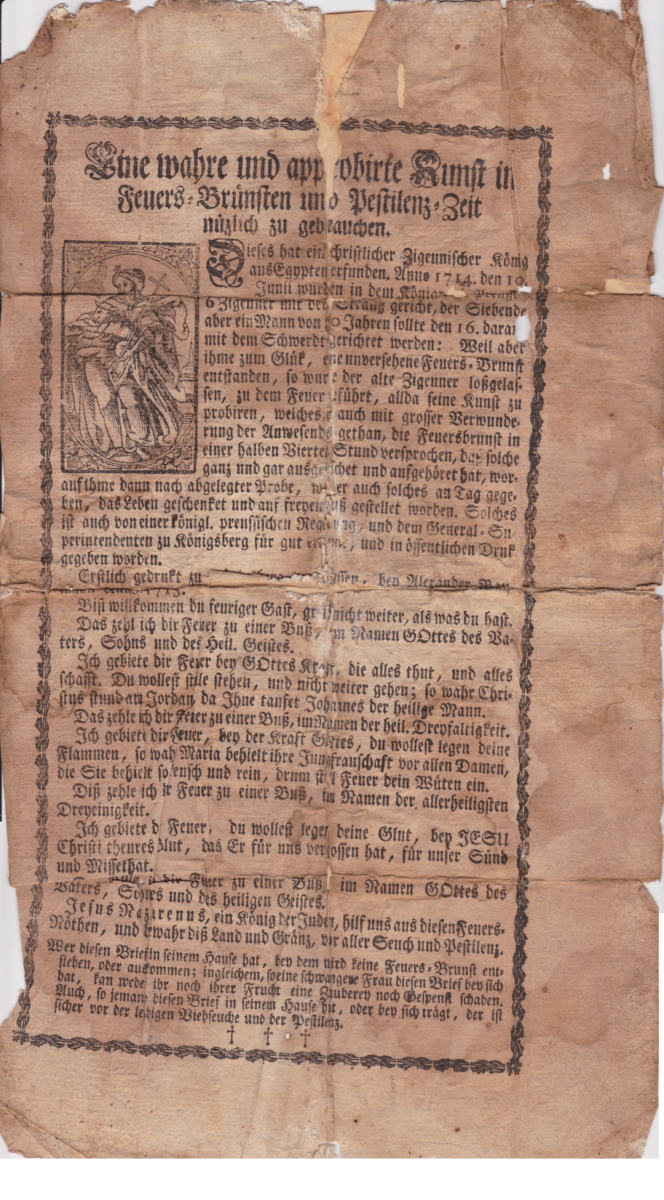 Eine wahre und approbirte Kunst in
Feuers-Brünsten und Pestilenz-Zeit
nüzlich zu gebrauchen.
Dieses hat ein christlicher Zigeunischer König
aus Egypten erfunden. Anno 1714. den 10.
Junii wurden in dem
6 Zigeuner mit dem Strang gericht, der Siebende
aber ein Mann von Jahren sollte den 16. darauf
mit dem Schwerdt gerichtet werden: Weil aber
ihme zum Glük, eine unversehene Feuers-Brunst
entstanden, so wurde der alte Zigeuner loßgelas-
sen, zu dem Feuer geführt, allda seine Kunst zu
probiren, welches er auch mit grosser Verwunde-
rung der Anwesenden gethan, die Feuersbrunst in
einer halben Viertel Stund versprochen, daß solche
ganz und gar ausgelöschet und aufgehöret hat, wor-
auf ihme dann nach abgelegter Probe, weiler auch solches an Tag gege-
ben, das Leben geschenket und auf freyen Fuß gestellet worden. Solches
ist auch von einer königl. preussischen Regierung, und dem General-Su-
perintendenten zu Königsberg für gut erkannt, und in öffentlichen Druk
gegeben worden.
Erstlich gedrukt zu bey Alexander
1715.
Bist willkommen du feuriger Gast, greif nicht weiter, als was du hast.
Das zehl ich dir Feuer zu einer Buß, im Namen GOttes des Va-
ters, Sohns und des Heil. Geistes.
Ich gebiete dir Feuer bey GOttes Kraft, die alles thut, und alles
schafft. Du wollest stille stehen, und nicht weiter gehen; so wahr Chri-
stus stund am Jordan, da Ihne taufet Johannes der heilige Mann.
Das zehle ich dir Feuer zu einer Buß, im Namen der heil. Dreyfaltigkeit.
Ich gebiete dir Feuer, bey der Kraft GOttes, du wollest legen deine
Flammen, so wahr Maria behielt ihre Jungfrauschaft vor allen Damen,
die Sie behielt so keusch und rein, drum stell Feuer dein Wüten ein.
Diß zehle ich dir Feuer zu einer Buß, im Namen der allerheiligsten
Dreyeinigkeit.
Ich gebiete dir Feuer, du wollest legen deine Glut, bey JESU
Christi theures Blut, das Er für uns vergossen hat, für unser Sünd
und Missethat.
Feuer zu einer Buß, im Namen GOttes des
Vaters, Sohns und des heiligen Geistes.
Jesus Nazarenus, ein König der Juden, hilf uns aus diesen Feuers-
Nöthen, und bewahr diß Land und Gränz, vor aller Seuch und Pestilenz.
Wer diesen Brief in seinem Hause hat, bey dem wird keine Feuers-Brunst ent-
stehen, oder auskommen; ingleichem, so eine schwangere Frau diesen Brief bey sich
hat, kan weder ihr noch ihrer Frucht eine Zauberey noch Gespenst schaden.
Auch, so jemand diesen Brief in seinem Hause hat, oder bey sich trägt, der ist
sicher vor der leidigen Viehseuche und der Pestilenz.
† † †